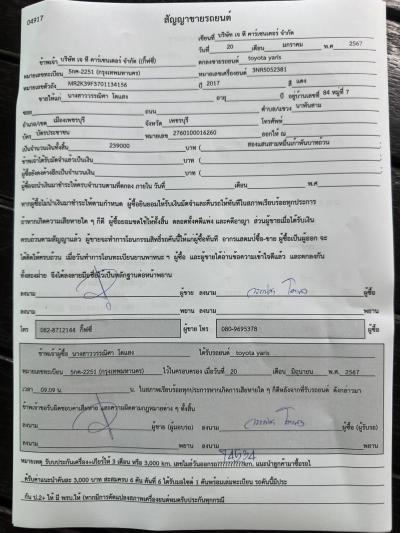 04917
สัญญาขายรถยนต์
เขียนที่ บริษัท เจ ที คาร์เซนเตอร์ จำกัด (กี้ฟซี่)
วันที่ 20 เดือน มกราคม พ.ศ 2567
ข้าพเจ้า บริษัท เจ ที คาร์เซนเตอร์ จำกัด (กี้ฟซี่) ตกลงขายรถยนต์ toyota yaris
หมายเลขทะเบียน 5กค-2251 (กรุงเทพมหานคร) หมายเลขเครื่องยนต์ 3NR5052381
หมายเลขตัวถัง MR2K39F3701134156 ปี 2017 สี แดง
ขายให้แก่ นางสาววรรณิศา โตแสง อายุ ปี อยู่บ้านเลขที่ 84 หมู่ที่ 7
ซอย ถนน ตำบล/แขวง นาพันสาม
อำเภอ/เขต เมืองเพชรบุรี จังหวัด เพชรบุรี โทรศัพท์
บัตร บัตรประชาชน หมายเลข 2760100016260 ออกให้ ณ
เป็นจำนวนเงินทั้งสิ้น 239000 บาท ( สองแสนสามหมื่นเก้าพันบาทถ้วน
ข้าพเจ้าได้รับมัดจำแล้วเป็นเงิน บาท (
ผู้ซื้อยังคงค้างอีกเป็นจำนวนเงิน บาท (
ผู้ซื้อจะนำเงินมาชำระให้ครบจำนวนตามที่ตกลง ภายใน วันที่ เดือน พ.ศ
หากผู้ซื้อไม่นำเงินมาชำระให้ตามกำหนด ผู้ซื้อยินยอมให้ริบเงินมัดจำและคืนรถให้ทันทีในสภาพเรียบร้อยทุกประการ
ถ้าหากเกิดความเสียหายใด ๆ ก็ดี ผู้ซื้อยอมชดใช้ให้ทั้งสิ้น ตลอดทั้งคดีแพ่ง และคดีอาญา ส่วนผู้ขายเมื่อได้รับเงิน
ครบถ้วนตามสัญญาแล้ว ผู้ขายจะทำการโอนกรรมสิทธิ์รถคันนี้ให้แก่ผู้ซื้อทันที
ทั้งสองฝ่าย จึงได้ลงลายมือชื่อไว้เป็นหลักฐานต่อหน้าพยาน
ลงนาม ผู้ขาย ลงนาม ผู้ซื้อ
ลงนาม พยาน ลงนาม พยาน
โทร 082-8712144 กี้ฟซี่ ผู้ขาย โทร 080-9695378 ผู้ซื้อ
ข้าพเจ้าผู้ซื้อ นางสาววรรณิศา โตแสง ได้รับรถยนต์ toyota yaris
หมายเลขทะเบียน 5กค-2251 (กรุงเทพมหานคร) ไว้ในครอบครอง เมื่อวันที่ 20 เดือน มิถุนายน พ.ศ. 2567
เวลา 09.09 น. ในสภาพเรียบร้อยทุกประการหากเกิดการเสียหายใด ๆ ก็ดีหลังจากที่รับรถยนต์ ดังกล่าวมา
ข้าพเจ้าขอรับผิดชอบค่าเสียหาย และความผิดตามกฎหมายต่าง ๆ ทั้งสิ้น
ลงนาม ผู้ขาย (ผู้มอบรถ) ลงนาม ผู้ซื้อ (ผู้รับรถ)
ลงนาม พยาน ลงนาม พยาน
74534
หมายเหตุ รับประกันเครื่อง+เกียร์ให้ 3 เดือน หรือ 3,000 km. เลขไมล์วันออกรถ??????????km. แนะนำลูกค้ามาซื้อรถไ
ด้รับค่าแนะนำคันละ 3,000 บาท สะสมครบ 6 คัน คันที่ 6 ได้รับมอไซค์ 1 คันพร้อมเล่มทะเบียน รถคันนี้มีประ
กัน ป.2+ ให้ มี พรบ.ให้ (หากมีการดัดแปลงสภาพเครื่องยนต์หมดรับประกันทุกกรณี